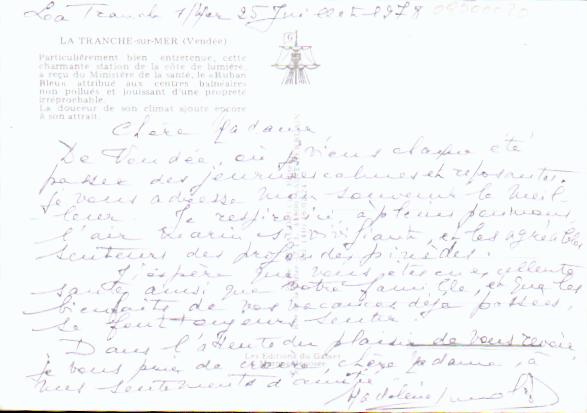 La Tranche s/Mer 25 Juillet 1978
LA TRANCHE-sur-MER (Vendée)
Particulièrement bien entretenue, cette
charmante station de la côte de lumière,
a reçu du Ministère de la santé, le «Ruban
Bleu» attribué aux centres balnéaires
non pollués et jouissant d'une propreté
irréprochable.
La douceur de son climat ajoute encore
à son attrait.
G
Chère Madame
De Vendée, où je viens chaque été
passer des journées calmes et reposantes
je vous adresse mon souvenir le meil-
leur. Je respire ici, à pleins poumons,
l'air marin si vivifiant, et les agréables
senteurs des profondes pinèdes.
J'espère que vous êtes en excellente
santé, ainsi que votre famille, et que les
bienfaits de vos vacances déjà passées,
se font toujours sentir.
Dans l'attente du plaisir de vous revoir
Les Editions du Gabier
je vous prie de croire, chère Madame, à
mes sentements d'amitié
Madeleine